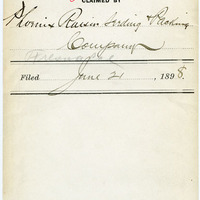 CLAIMED BY
Phoenix Raisin Seeding & Packing
Company
Filed June 21, 1898.